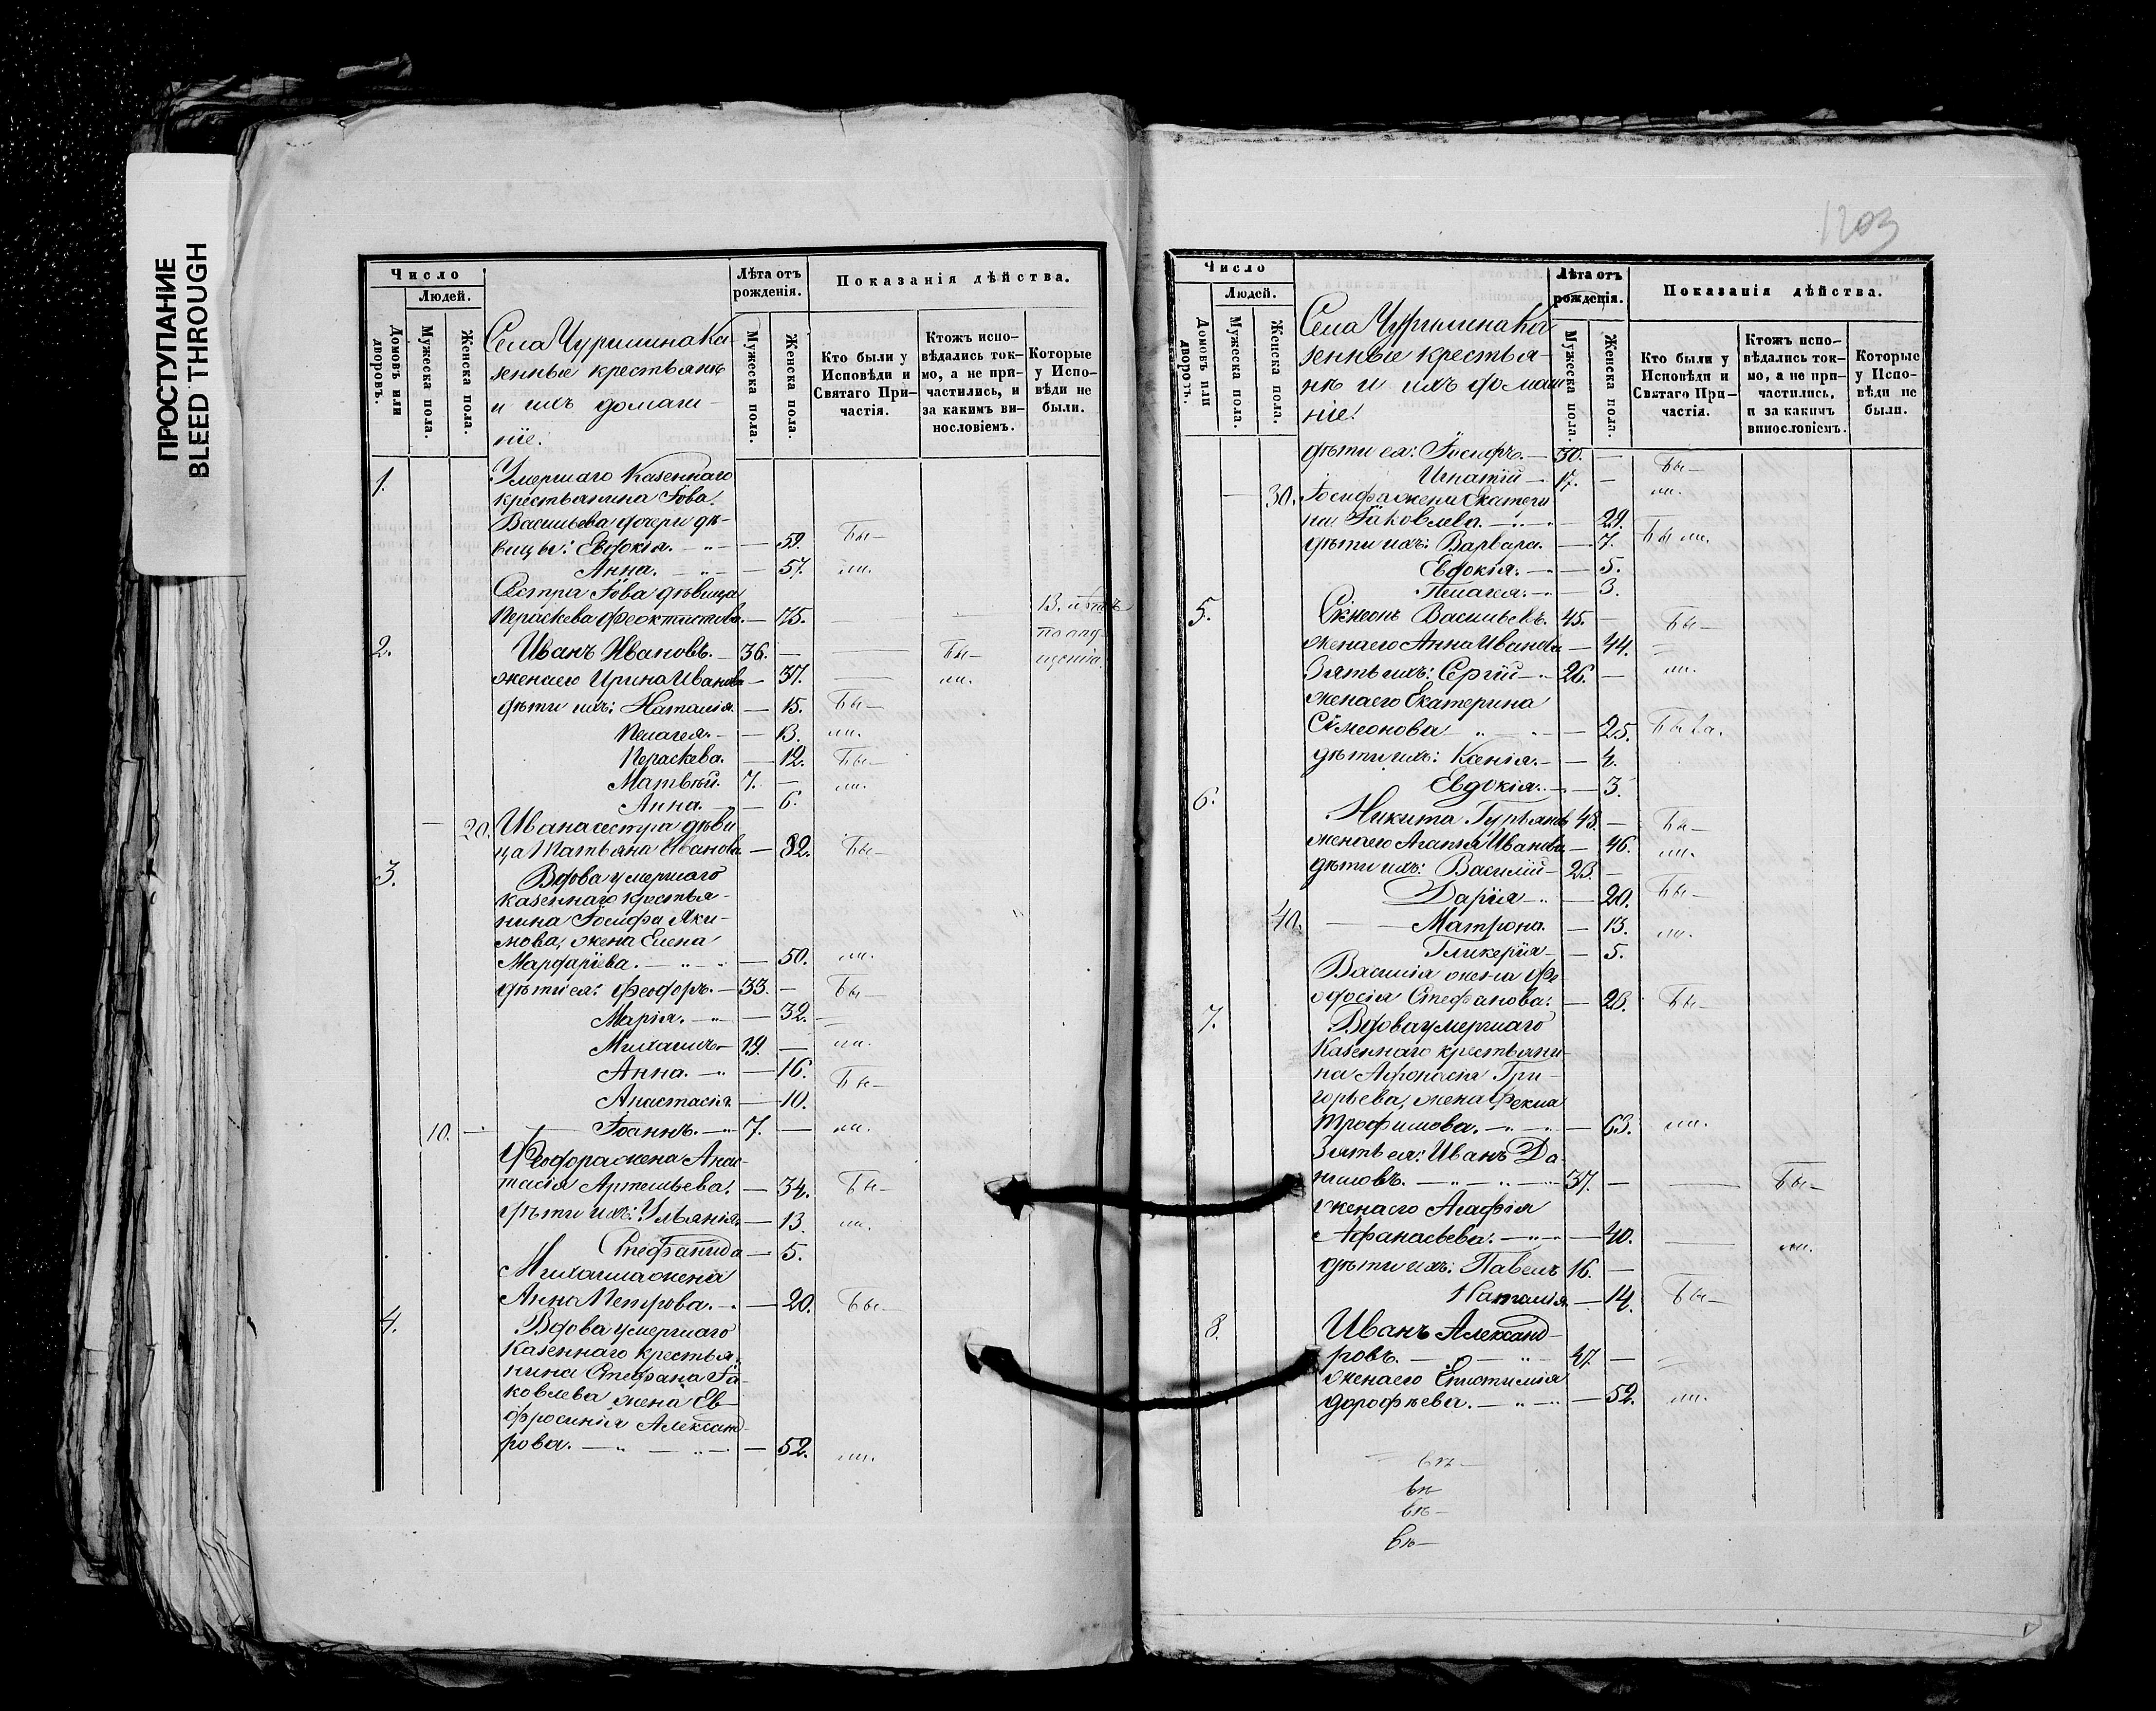 ПРОСТУПАНИЕ
BLEED THROUGH
Число
Людей.
Домовъ или дворовъ.
Мужеска пола.
Женска пола.
Села Чуришина ка-
зенные крестьянѣ
и ихъ домаш-
ніе.
Лѣта отъ
рожденія.
Мужеска пола.
Женска пола.
Показанія дѣйства.
Кто были у
Исповѣди и
Святаго При-
частія.
Ктожъ испо-
вѣдались ток-
мо, а не при-
частились, и
за какимъ ви-
нословіемъ.
Которые
у Испо-
вѣди не
были.
1. Умершаго казеннаго
крестьянина Іова
Васильева дочери дѣ-
вицы: Евдокія. — 59. Бы-
Анна. — 57. ли.
Сестра Іова дѣвица
Параскева Феоктистова. — 75. —
2. Иванъ Ивановъ. 36. — Бы-
жена его Ирина Иванова — 37. — ли.
дѣти ихъ: Наталія. — 15. Бы-
Пелагея. — 13. ли.
Параскева. — 12. Бы-
Матвѣй. 7. — ли.
Анна. — 6.
— 20. Ивана сестра дѣви
ца Татьяна Иванова — 32. Бы-
3. Вдова умершаго
казеннаго крестья-
нина Іосифа Яки-
мова, жена Елена
Маргаріева. — 50. ли.
дѣти ея: Феодоръ. 33. — Бы-
Марія. — 32. —
Михаилъ 19. — ли.
Анна. — 16. Бы-
Анастасія. — 10.
10. — Іоаннъ. 7. — ли.
Феодора жена Анас-
тасія Артемьева. — 34. Бы-
дѣти ихъ: Ульянія — 13. ли.
Стефанида — 5.
Михаила жена
Анна Петрова. — 20. Бы-
4. Вдова умершаго
казеннаго крестья-
нина Стефана Іа-
ковлева жена Ев-
фросинія Александ-
рова. — 52. ли.
1203
Число
Людей.
Домовъ или дворовъ.
Мужеска пола.
Женска пола.
Села Чуришина ка
зенные крестья-
нѣ и ихъ домаш
ніе.
Лѣта отъ
рожденія.
Мужеска пола.
Женска пола.
Показанія дѣйства.
Кто были у
Исповѣди и
Святаго При-
частія.
Ктожъ испо-
вѣдались ток-
мо, а не при-
частились,
и за какимъ
винословіемъ.
Которые
у Испо-
вѣди не
были.
дѣти ея: Іосифъ. — 30. — Бы-
Игнатій — 17. — ли.
— 30. Іосифа жена Екатери
на Іаковлева. — 29. Были.
дѣти ихъ: Варвара. — 7.
Евдокія. — 5.
Пелагея. — 3.
5. Сѵмеонъ Васильевъ. 45. — Бы-
жена его Анна Иванова — 44. —
Зять ихъ: Сергій 26. — ли.
жена его Екатерина
Сѵмеонова — 25. Была.
дѣти ихъ: Ксенія. — 4.
Евдокія. — 3.
6. Никита Гурьяновъ 48. — Бы-
жена его Агапія Иванова — 46. ли.
дѣти ихъ: Василій 23. —
Дарія — 20. Бы-
40. — Матрона. — 13. ли.
Гликерія — 5.
Василія жена Фе
одосія Стефанова. — 28. Бы-
7. Вдова умершаго
казеннаго крестьяни
на Афонасія Гри-
горьева, жена Фекла
Трофимова. — 63. ли.
Зять ея: Иванъ Да-
ниловъ. 37. — Бы-
жена его Агафія
Афанасьева. — 40. — ли.
дѣти ихъ: Павелъ 16. —
Наталія. — 14. Бы-
8. Иванъ Александ-
ровъ. 47. —
жена его Епистимія
дорофѣева. — 52. ли.